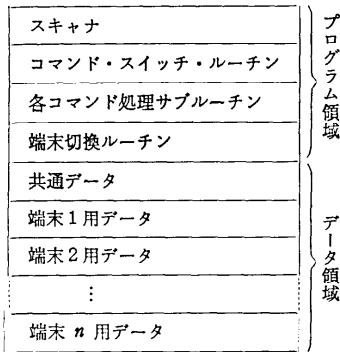 スキャナ
コマンド・スイッチ・ルーチン
各コマンド処理サブルーチン
端末切換ルーチン
プログラム領域
共通データ
端末1用データ
端末2用データ
⋮
端末 n 用データ
データ領域